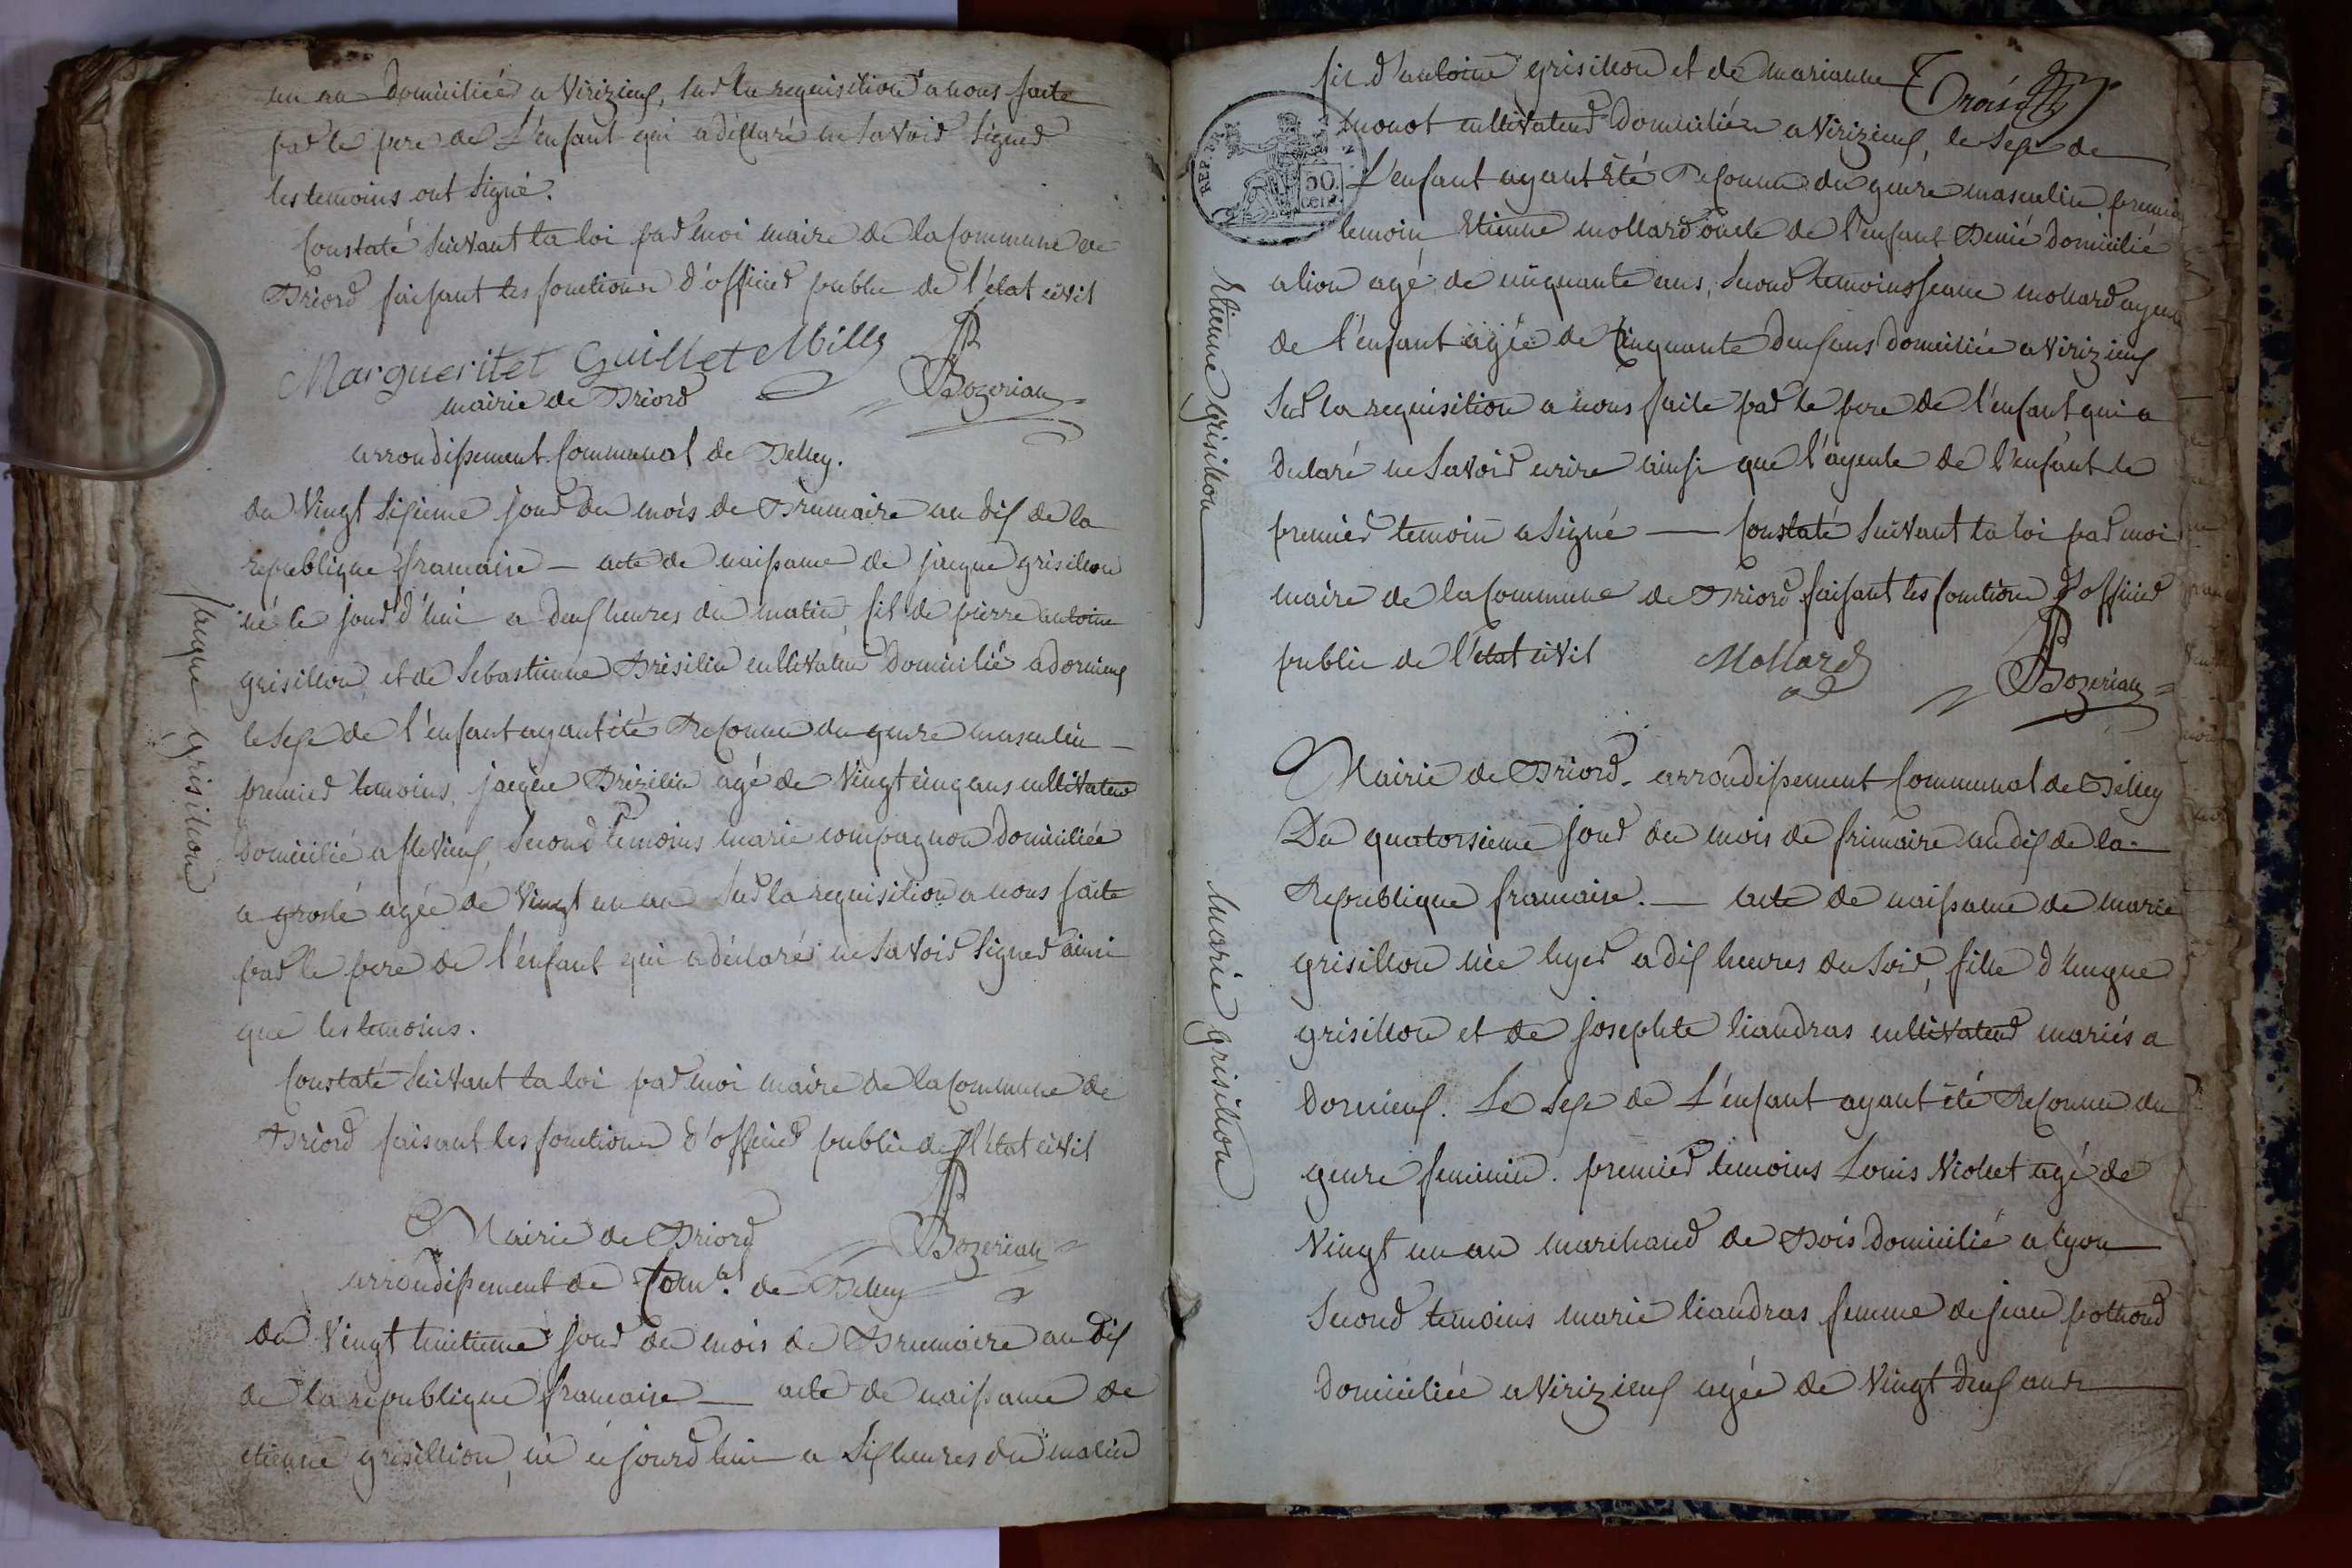 un an domiciliée a Virizieux, sur la requisition a nous faite
par le pere de L'enfant qui a déclaré ne savoir signer
les temoins ont signé.
Constaté suivant la loi par moi maire de la Commune de
Briord faisant les fonctions d'officier public de l'état civil
Margueritet Guillet Milly
Bozerian
mairie de Briord
arrondissement Communal de Belley.
du Vingt sixieme jour du mois de Brumaire an dix de la
republique francaise — acte de naissance de jacque grisillon
né le jourd'hui a deux heures du matin, fil de pierre antoine
grisillon, et de Sebastienne Brisilin cultivateur domicilié a dornieux
le sexe de l'enfant ayant été Reconnu du genre masculin —
premier temoins, jacque Brizilin agé de Vingt cinq ans cultivateur
domicilié a flevieux, second temoins marie compagnon domiciliée
a groslé agée de Vingt un an sur la requisition a nous faite
par le pere de l'énfant qui a déclaré ne savoir signer ainsi
que les temoins.
Constaté suivant la loi par moi maire de la Commune de
Briord faisant les fonctions d'officier public de l'état civil
Mairie de Briord
Bozerian
arrondissement de Com.al de Belley
du Vingt huitieme jour du mois de Brumaire an dix
de la republique francaise — acte de naissance de
etienne grisillion, né ce jourd'hui a six heures du matin
jacque grisillon
fil d'antoine grisillon et de marianne
Troisf
monot cultivateur domiciliés a Virizieux, le sexe de
REP
50
cen
L'enfant ayant été Reconnu du genre masculin, premier
temoin Etienne mollard oncle de l'enfant domicilié
a lion agé de cinquante ans, second temoins jeanne mollard ayeule
de l'enfant agée de Cinquante deux ans domiciliée a Virizieux
sur la requisition a nous faite par le pere de l'enfant qui a
declaré ne savoir ecrire ainsi que l'ayeule de l'enfant le
premier temoin a signé — Constaté suivant la loi par moi
maire de la Commune de Briord faisant les fonctions d'officier
public de l'état civil
Mollard
Bozerian
Etienne grisillon
Mairie de Briord. arrondissement Communal de Belley
Du quatorsieme jour du mois de frimaire an dix de la
Republique francaise. — acte de naissance de marie
grisillon née hyer a dix heures du soir, fille d'hugue
grisillon et de josephte liandras cultivateur mariés a
dornieux. Le sexe de L'énfant ayant été Reconnu du
genre feminin. premier temoins Louis Violet agé de
Vingt un an marchand de Bois domicilié a lyon
second temoins marie liandras femme de jean pothond
domiciliée a Virizieux agée de Vingt deux ans
marie grisillon